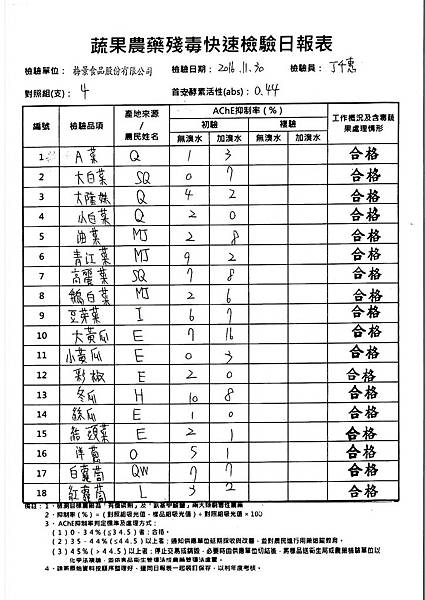 蔬果農藥殘毒快速檢驗日報表
檢驗單位： 梅景食品股份有限公司 檢驗日期：2016.11.30 檢驗員：丁千惠
對照組(支)：4 首支酵素活性(abs)：0.44
編號 檢驗品項 產地來源/農民姓名 AChE抑制率(%) 工作概況及含毒蔬果處理情形
初驗 複驗
無溴水 加溴水 無溴水 加溴水
1 A菜 Q 1 3 合格
2 大白菜 SQ 0 7 合格
3 大陸妹 Q 4 2 合格
4 小白菜 Q 2 0 合格
5 油菜 MJ 2 8 合格
6 青江菜 MJ 9 2 合格
7 高麗菜 SQ 7 8 合格
8 鵝白菜 MJ 2 6 合格
9 豆芽菜 I 6 7 合格
10 大黃瓜 E 7 16 合格
11 小黃瓜 E 0 3 合格
12 彩椒 E 2 0 合格
13 冬瓜 H 10 8 合格
14 絲瓜 E 1 0 合格
15 結頭菜 E 2 1 合格
16 洋蔥 O 5 1 合格
17 白蘿蔔 QW 7 7 合格
18 紅蘿蔔 L 3 2 合格
2．抑制率(%)=(對照組吸光值-樣品組吸光值)÷對照組吸光值×100
3．AChE抑制判定標準及處理方式：
(1)0-34%(≦34.5)者：合格。
(2)35-44%(≦44.5)以上者：通知供應單位延期採收與改善，並對農民進行用藥追蹤教育。
(3)45%(>44.5)以上者：停止交易或銷毀，必要時由供應單位切結後，將樣品送衛生局或農藥檢驗單位以